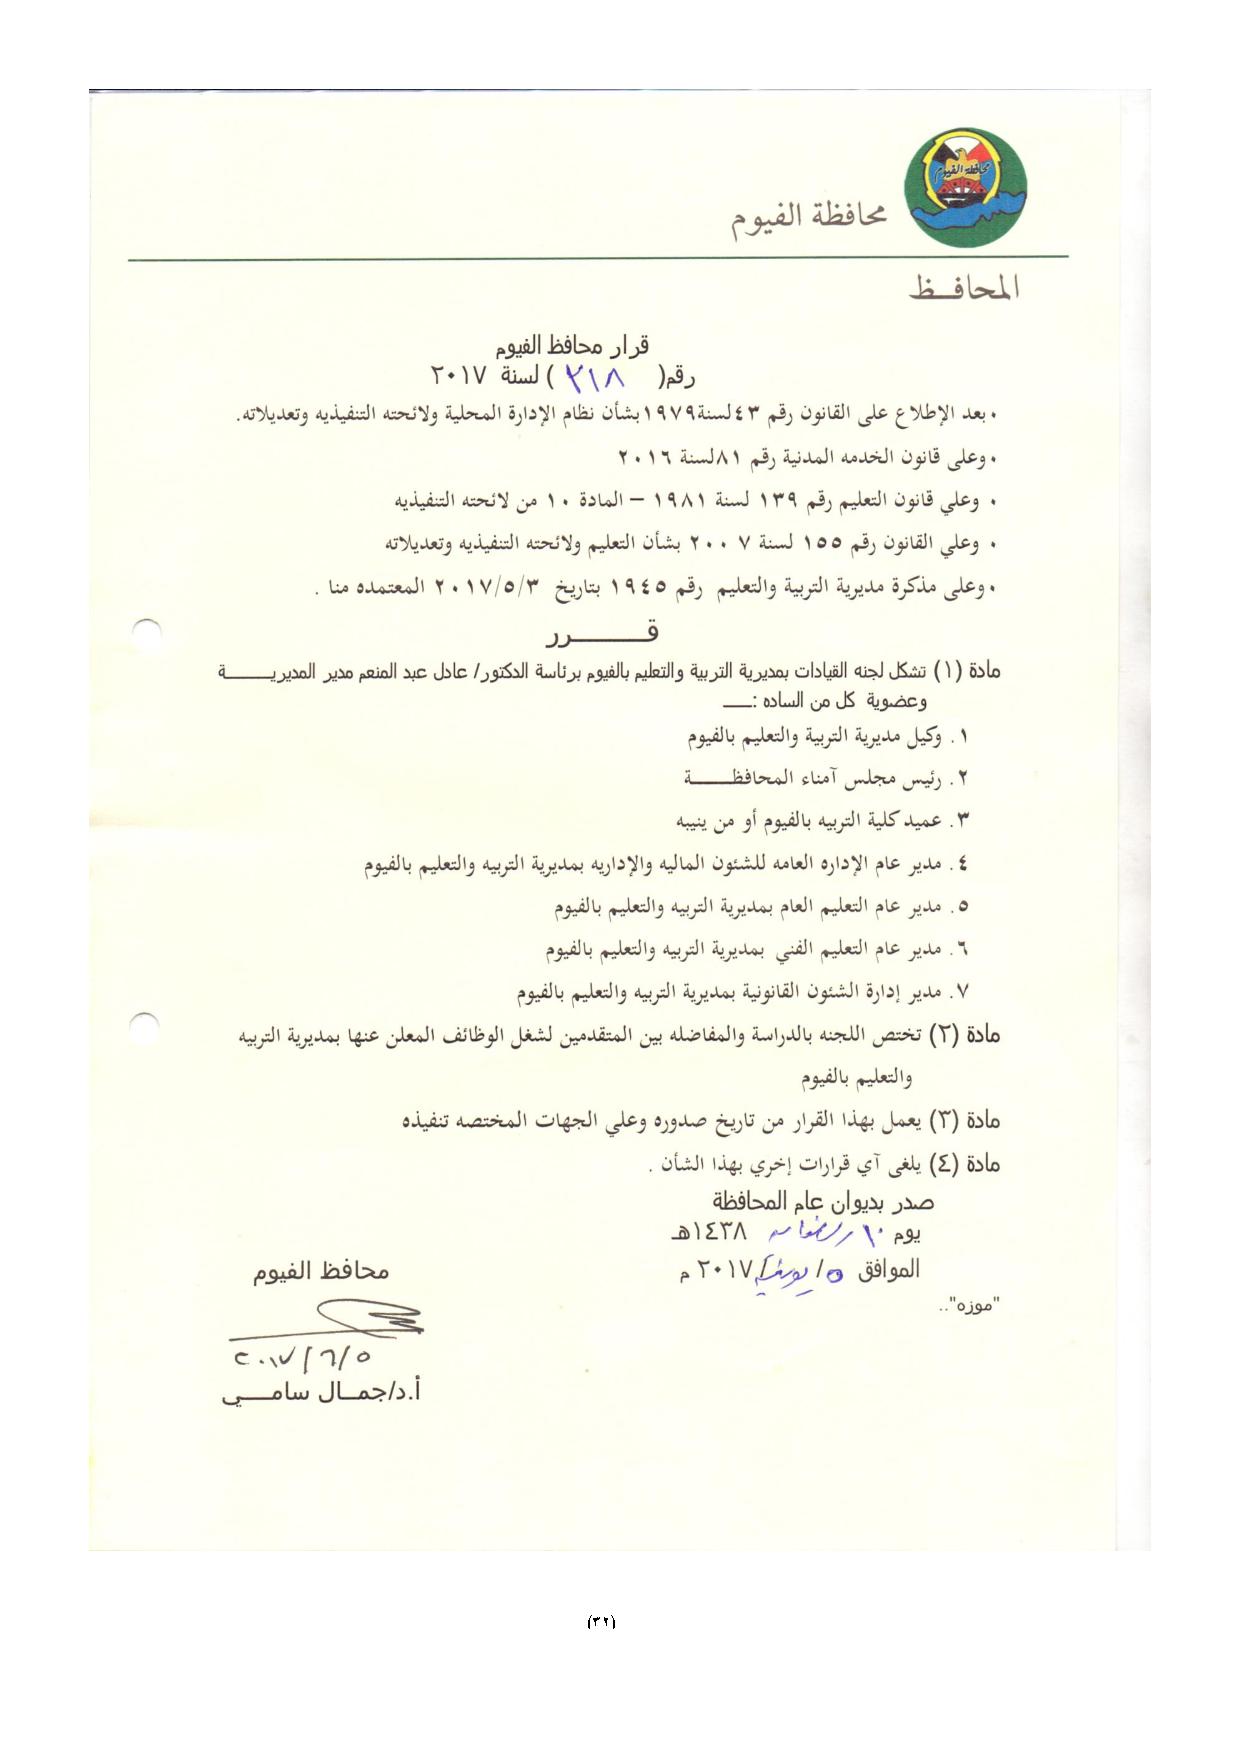 محافظة الفيوم
محافظة الفيوم
المحافـــظ
قرار محافظ الفيوم
رقم( ٣١٨ ) لسنة ٢٠١٧
• بعد الإطلاع على القانون رقم ٤٣لسنة١٩٧٩بشأن نظام الإدارة المحلية ولائحته التنفيذيه وتعديلاته.
• وعلى قانون الخدمه المدنية رقم ٨١لسنة ٢٠١٦
• وعلي قانون التعليم رقم ١٣٩ لسنة ١٩٨١ – المادة ١٠ من لائحته التنفيذيه
• وعلي القانون رقم ١٥٥ لسنة ٢٠٠٧ بشأن التعليم ولائحته التنفيذيه وتعديلاته
• وعلى مذكرة مديرية التربية والتعليم رقم ١٩٤٥ بتاريخ ٢٠١٧/٥/٣ المعتمده منا .
قـــــــــرر
مادة (١) تشكل لجنه القيادات بمديرية التربية والتعليم بالفيوم برئاسة الدكتور/ عادل عبد المنعم مدير المديريـــــــة
وعضوية كل من الساده :ــــ
١. وكيل مديرية التربية والتعليم بالفيوم
٢. رئيس مجلس آمناء المحافظـــــــة
٣. عميد كلية التربيه بالفيوم أو من ينيبه
٤. مدير عام الإداره العامه للشئون الماليه والإداريه بمديرية التربيه والتعليم بالفيوم
٥. مدير عام التعليم العام بمديرية التربيه والتعليم بالفيوم
٦. مدير عام التعليم الفني بمديرية التربيه والتعليم بالفيوم
٧. مدير إدارة الشئون القانونية بمديرية التربيه والتعليم بالفيوم
مادة (٢) تختص اللجنه بالدراسة والمفاضله بين المتقدمين لشغل الوظائف المعلن عنها بمديرية التربيه
والتعليم بالفيوم
مادة (٣) يعمل بهذا القرار من تاريخ صدوره وعلي الجهات المختصه تنفيذه
مادة (٤) يلغى آي قرارات إخري بهذا الشأن .
صدر بديوان عام المحافظة
يوم ١٠ رمضان ١٤٣٨هـ
الموافق ٥/ يونيه/ ٢٠١٧ م
محافظ الفيوم
"موزه"..
٢٠١٧/٦/٥
أ.د/جمــال سامــــي
(٣٢)